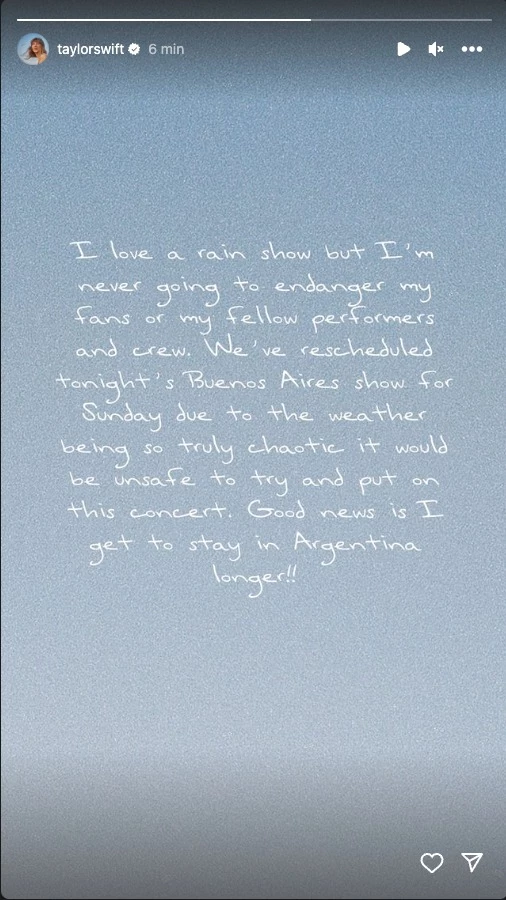 taylorswift 6 min
I love a rain show but I'm
never going to endanger my
fans or my fellow performers
and crew. We've rescheduled
tonight's Buenos Aires show for
Sunday due to the weather
being so truly chaotic it would
be unsafe to try and put on
this concert. Good news is I
get to stay in Argentina
longer!!